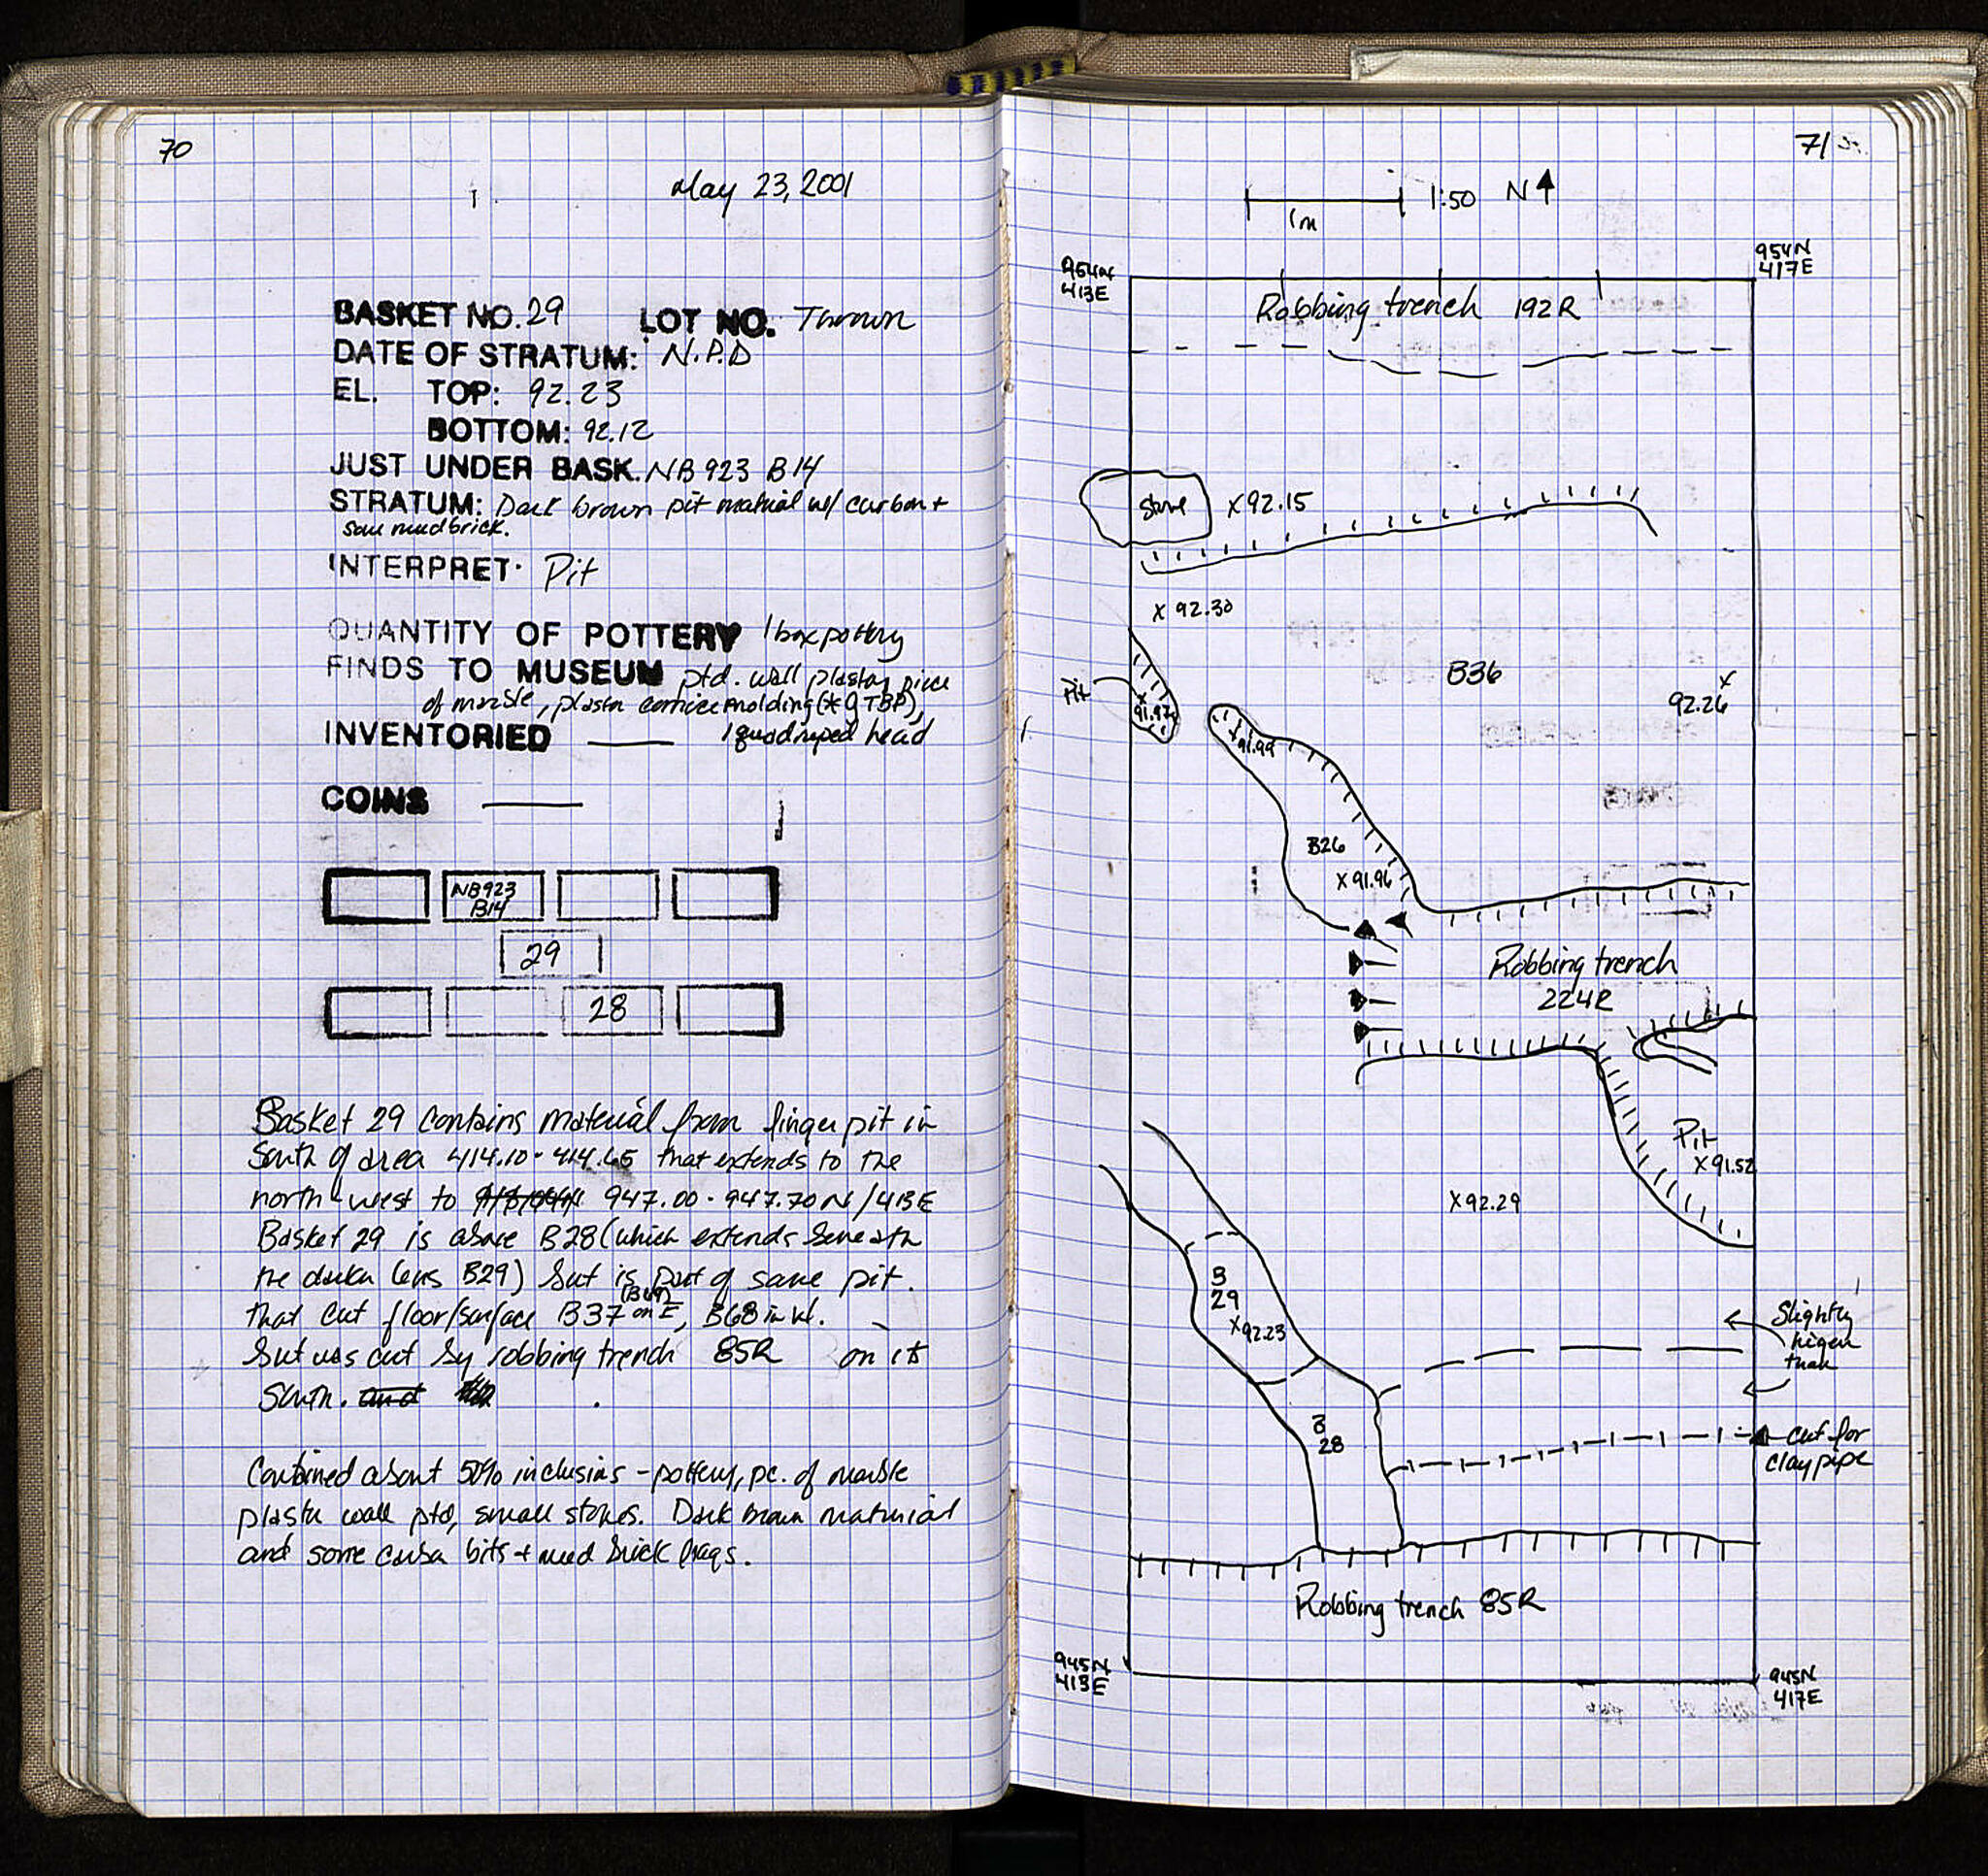 70
May 23, 2001
BASKET NO. 29 LOT NO. Thrown
DATE OF STRATUM: N.P.D
EL. TOP: 92.23
BOTTOM: 92.12
JUST UNDER BASK. NB923 B14
STRATUM: Dark brown pit material w/ carbon +
some mudbrick.
INTERPRET. Pit
QUANTITY OF POTTERY 1 box pottery
FINDS TO MUSEUM ptd. wall plaster, piece
of marble, plaster cornice molding (*Q TBP),
INVENTORIED —— 1 quadruped head
COINS ——
NB923
B14
29
28
Basket 29 contains material from finger pit in
South of area 414.10 - 414.65 that extends to the
north-west to 947.00 - 947.70 N / 413E
Basket 29 is above B28 (which extends beneath
the darker lens B29) but is part of same pit.
that cut floor/surface B37 (B49) on E, B68 in W.
but was cut by robbing trench 85R on its
South. and
Contained about 50% inclusions - pottery, pc. of marble
plaster wall ptd, small stones. Dark brown material
and some carbon bits + mud brick frags.
71
1m
1:50 N
954N
413E
954N
417E
Robbing trench 192R
Stone
X 92.15
X 92.30
B36
X
92.26
Pit
X
91.97
X
91.99
B26
X 91.96
Robbing trench
224R
Pit
X 91.52
X 92.29
B
29
X 92.23
Slightly
higer
than
B
28
cut for
clay pipe
Robbing trench 85R
945N
413E
945N
417E